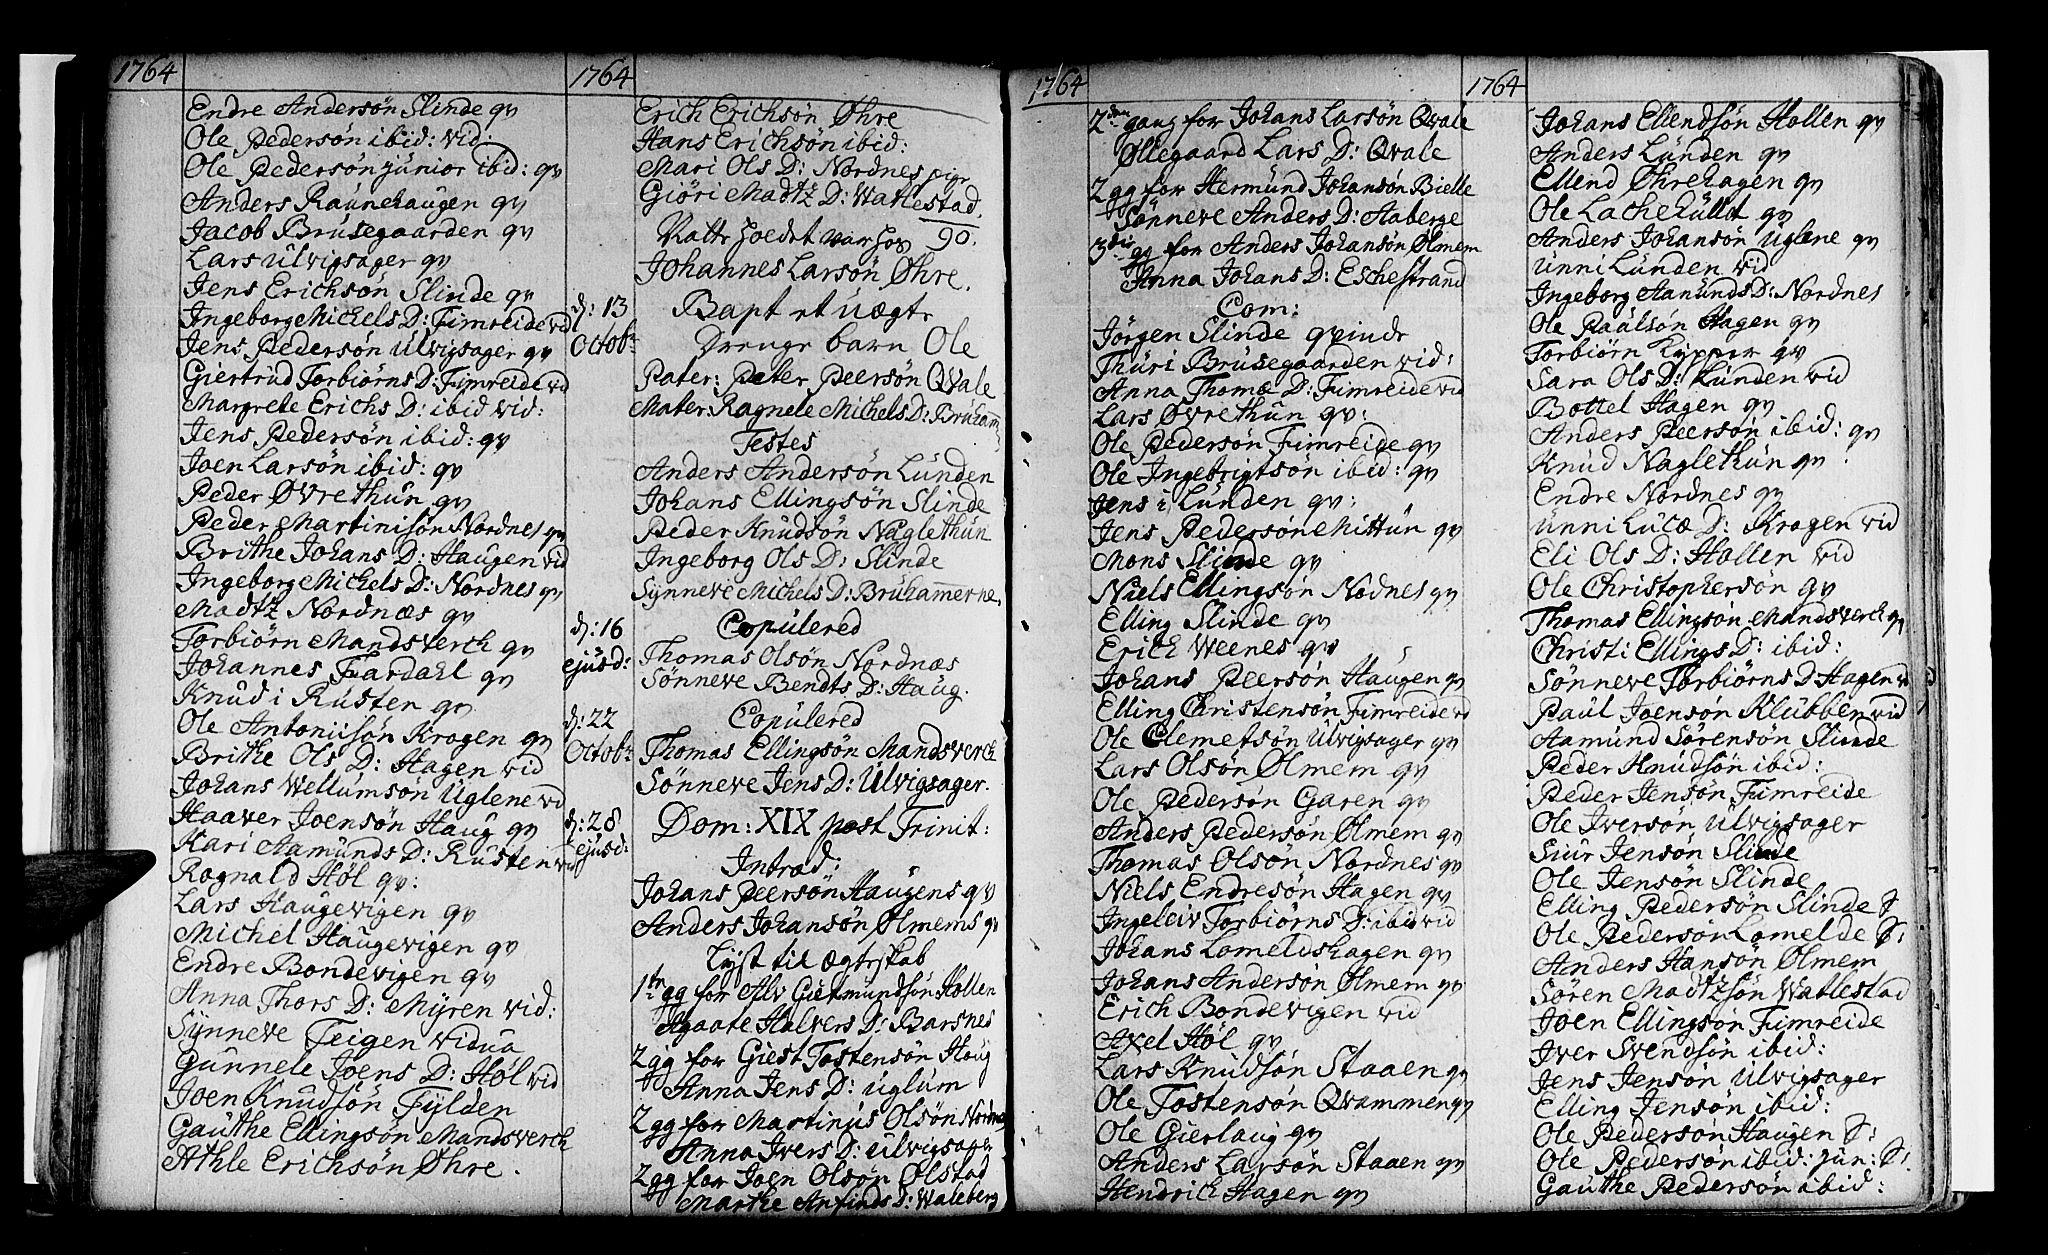 1764
Endre Andersøn Slinde qv
Ole Pedersøn ibid: vid:
Ole Pedersøn junior ibid: qv
Anders Raunehaugen qv
Jacob Brusegaarden qv
Lars Ulvigsager qv
Jens Erichsøn Slinde qv
Ingeborg Michels D: Fimreide vid
Jens Pedersøn Ulvigsager qv
Giertrud Torbiørns D: Fimreide vid
Margrete Erichs D: ibid vid:
Jens Pedersøn ibid: qv
Joen Larsøn ibid: qv
Peder Øvrethun qv
Peder Martinisøn Nordnes qv
Brithe Johans D: Haugen vid
Ingeborg Michels D: Nordnes qv
Madtz Nordnæs qv
Torbiørn Mandsverch qv
Johannes Fardahl qv
Knud i Rusten qv
Ole Antoniisøn Kragen qv
Brithe Ols D: Hagen vid
Johans Wellumsøn Uglene vid
Haaver Joensøn Haug qv
Kari Aamunds D: Rusten vid
Ragnald Høl qv:
Lars Haugevigen qv
Michel Haugevigen qv
Endre Bondevigen qv
Anna Thors D: Myren vid:
Synneve Teigen vidua
Gunnele Joens D: Høl vid
Joen Knudsøn Fylden
Gauthe Ellingsøn Mandsverch
Athle Erichsøn Øhre.
1764
Erich Erichsøn Øhre
Hans Erichsøn ibid:
Mari Ols D: Nordnes pigr
Giøri Madtz D: Watlestad.
90.
Johannes Larsøn Øhre.
d: 13 Octobr
Bapt et uægte
Drenge barn Ole
Pater: Peter Peersøn Qvale
Mater: Ragnele Michels D: Bruham̅
Testes
Anders Andersøn Lunden
Johans Ellingsøn Slinde
Peder Knudsøn Naglethun
Ingeborg Ols D: Slinde
Synneve Michels D: Bruham̅erne.
d: 16 ejusd:
Copulered
Thomas Olsøn Nordnæs
Sønneve Bendts D: Haug.
d: 22 Octobr
Copulered
Thomas Ellingsøn Mandsverch
Sønneve Jens D: Ulvigsager.
d: 28 ejusd:
Dom: XIX post Trinit:
Introd:
Johans Peersøn Haugens qv
Anders Johansøn Ølmems qv
Lyst til Ægteskab
1te gg for Alv Giermundsøn Hollen
Agaate Halvers D: Barsnes
2 gg for Giest Tostensøn Haug
Anna Jens D: Uglum
2 gg for Martinus Olsøn Nordnes
Anna Ivers D: Ulvigsager
2 gg for Joen Olsøn Ølstad
Marthe Anfinds D: Waleberg
1764
2den gang for Johans Larsøn Qvale
Øllegaard Lars D: Qvale
2 gg for Hermund Johansøn Bielle
Sønneve Anders D: Aaberge
3die gg for Anders Johansøn Ølmem
Anna Johans D: Eschestrand
Com:
Jørgen Slinde qvinde
Thuri Brusegaarden vid:
Anna Thomæ D: Fimreide vid
Lars Øvrethun qv:
Ole Pedersøn Fimreide qv
Ole Ingebrigtsøn ibid: qv
Jens i Lunden qv:
Jens Pedersøn Mittun qv
Mons Slinde qv
Niels Ellingsøn Nodnes qv
Elling Slinde qv
Erich Weenes qv
Johans Peersøn Haugen qv
Elling Christensøn Fimreide vd
Ole Clemetsøn Ulvigsager qv
Lars Olsøn Ølmem qv
Ole Pedersøn Garen qv
Anders Pedersøn Ølmem qv
Thomas Olsøn Nordnes qv
Niels Endresøn Hagen qv
Ingeleiv Torbiørns D: ibid vid
Johans Lomeldshagen qv
Johans Andersøn Ølmem qv
Erich Bondevigen vid
Axel Høl qv
Lars Knudsøn Staaen qv
Ole Tostensøn Qvammen qv
Ole Gierlaug qv
Anders Larsøn Staaen qv
Hendrich Hagen qv
1764
Johans Ellendsøn Hollen qv
Anders Lunden qv
Ellend Øhrehagen qv
Ole Lachehullet qv
Anders Johansøn Uglene qv
Unni Lunden vid
Ingeborg Aamunds D: Nordnes
Ole Paalsøn Hagen qv
Torbiørn Kypper qv
Sara Ols D: Lunden vid
Bottel Hagen qv
Anders Peersøn ibid: qv
Knud Naglethun qv
Endre Nordnes qv
Unni Lucæ D: Kragen vid
Eli Ols D: Hollen vid
Ole Christophersøn qv
Thomas Ellingsøn Mandsverch qv
Christi Ellings D: ibid:
Sønneve Torbiørns D Hagen v
Paul Joensøn Klubben vid
Aamund Sørensøn Slinde
Peder Knudsøn ibid:
Peder Jensøn Fimreide
Ole Iversøn Ulvigsager
Siur Jensøn Slinde
Ole Jensøn Slinde
Elling Pedersøn Slinde S
Ole Pedersøn Lomelde S:
Anders Hansøn Ølmem
Søren Madtzsøn Watlestad
Joen Ellingsøn Fimreide
Iver Svendsøn ibid:
Jens Jensøn Ulvigsager
Elling Jensøn ibid:
Ole Pedersøn Haugen S:
Ole Pedersøn ibid: jun: S:
Gauthe Pedersøn ibid: